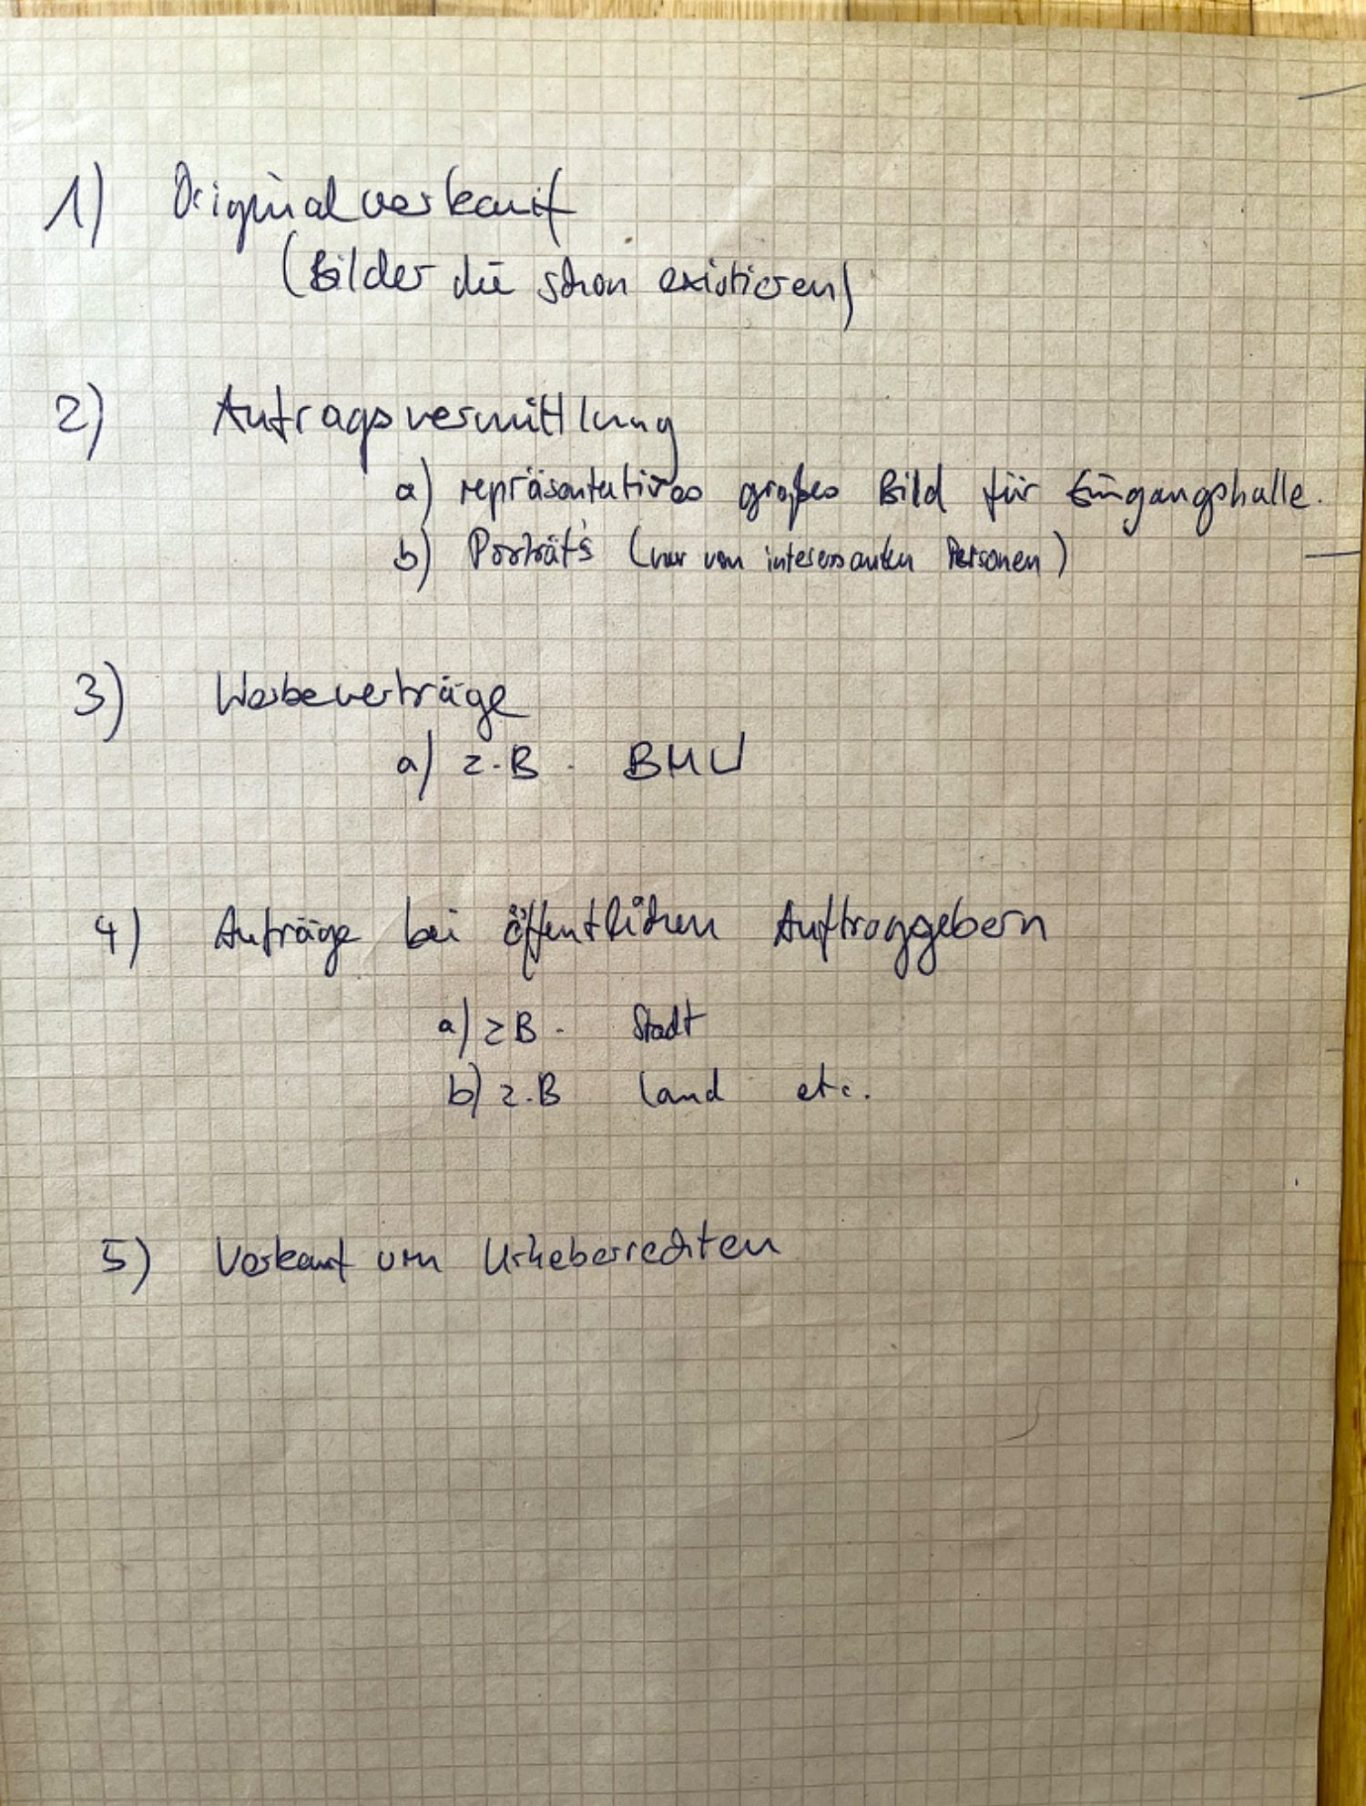 1) Originalverkauf
(Bilder die schon existieren)
2) Auftragsvermittlung
a) repräsentatives großes Bild für Eingangshalle.
b) Porträt's (nur von interessanten Personen)
3) Werbeverträge
a) z.B. BMW
4) Aufräge bei öffentlichen Auftraggebern
a) zB. Stadt
b) z.B Land etc.
5) Verkauf von Urheberrechten